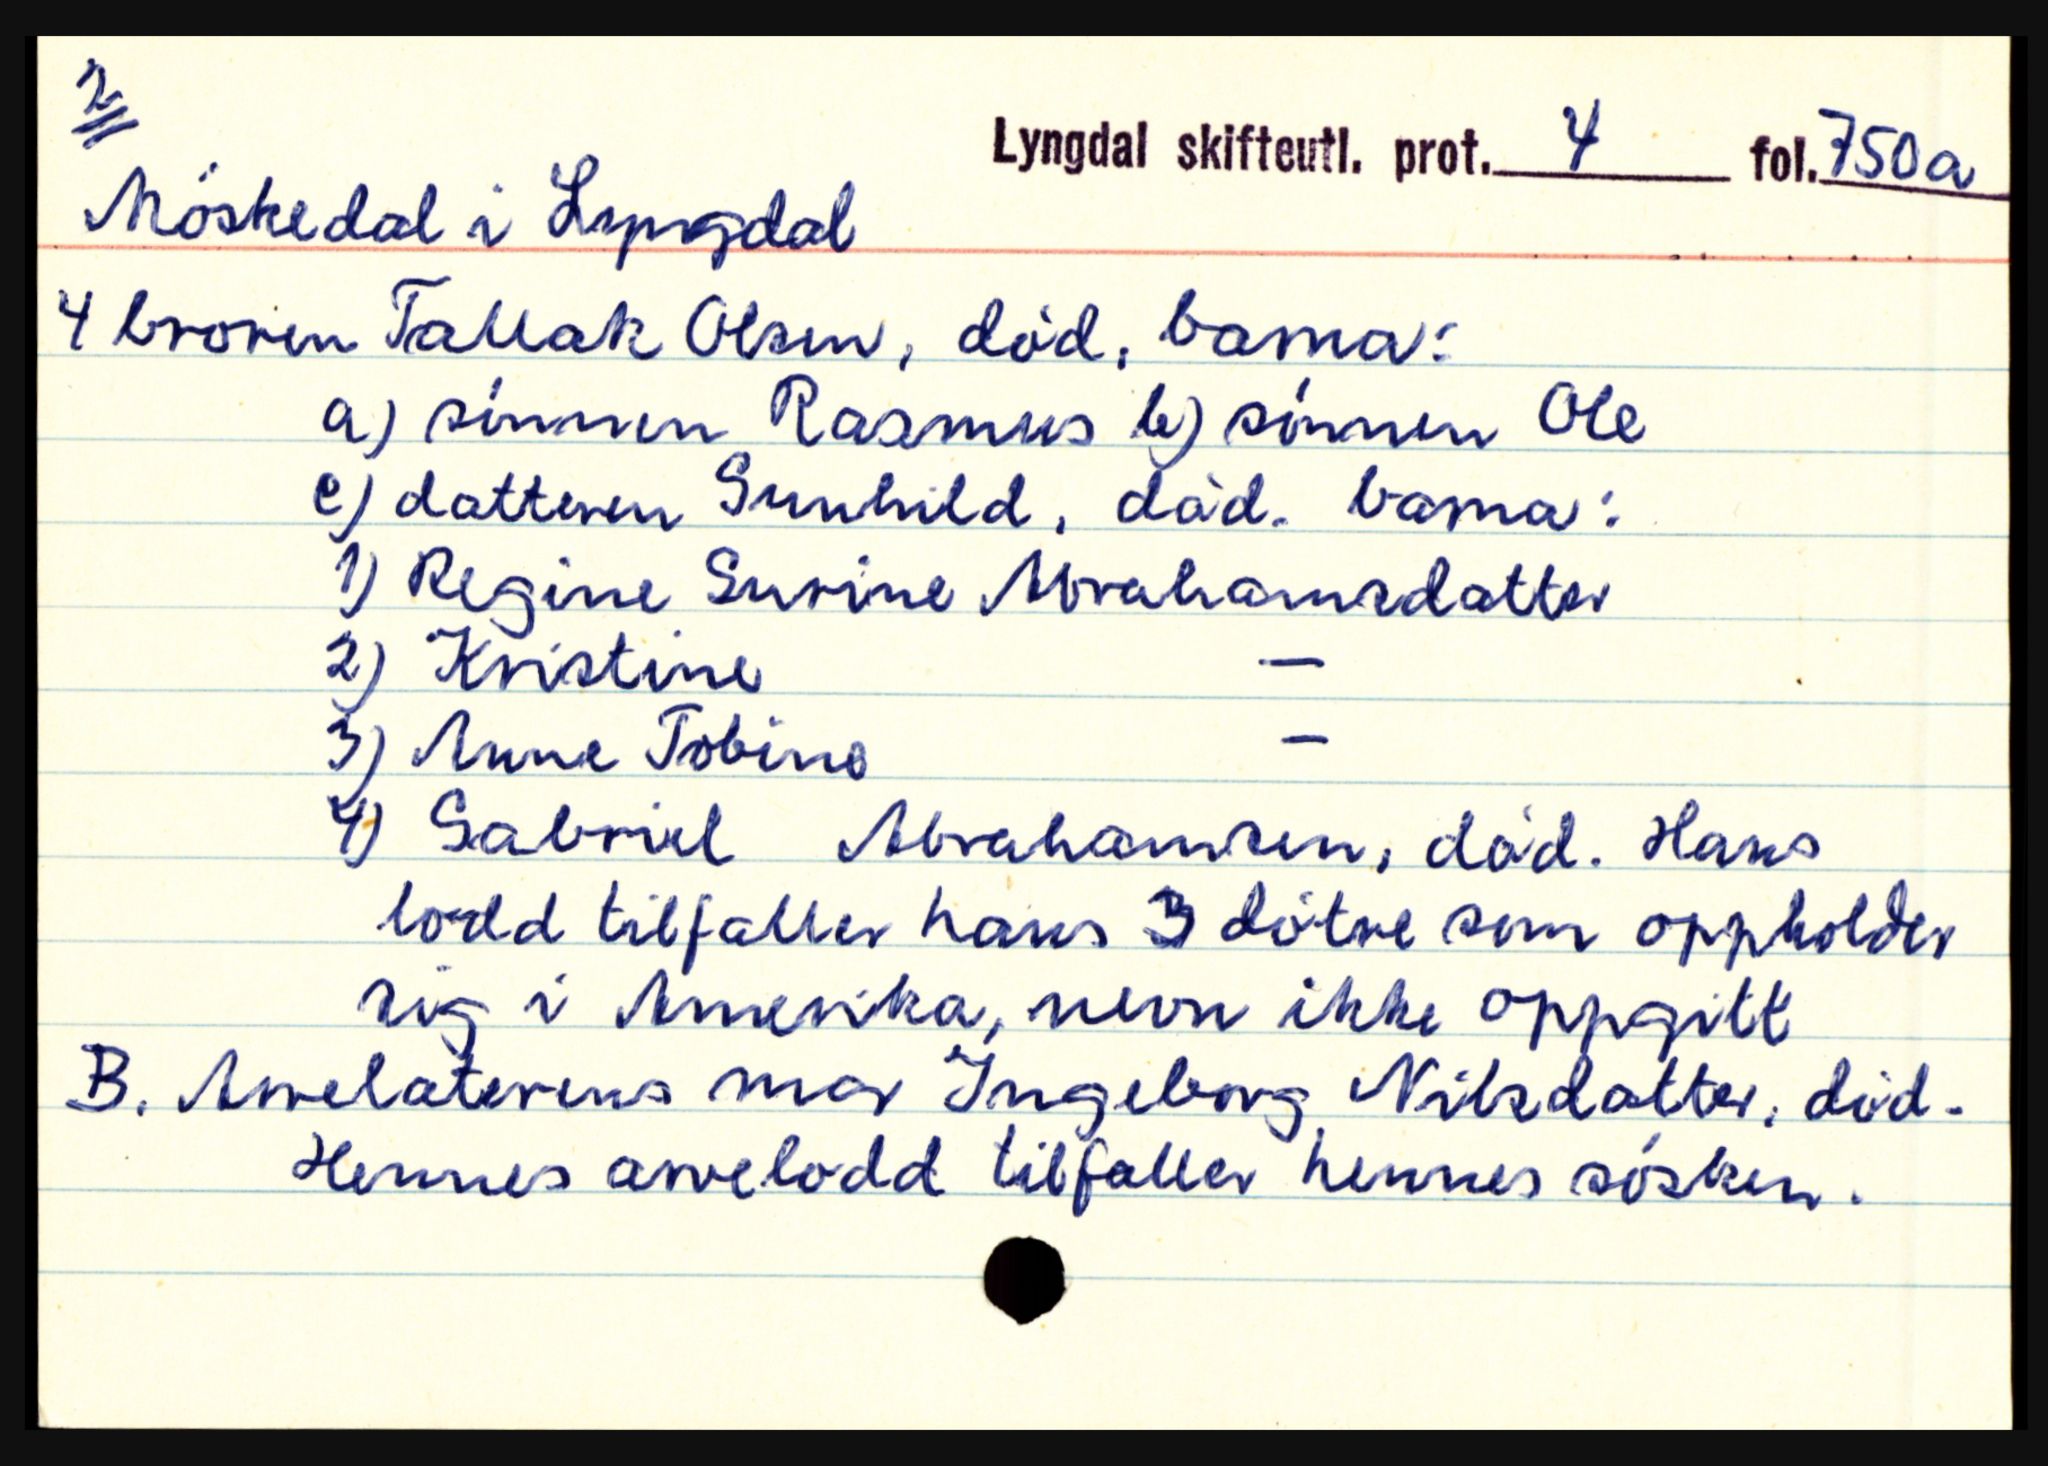 2
Lyngdal skifteutl. prot. 4 fol. 750a
Möskedal i Lyngdal
4 broren Tallak Olsen, död, barna:
a) sönnen Rasmus b) sönnen Ole
c) datteren Gunhild, död. barna:
1) Regine Gurine Abrahamsdatter
2) Kristine —
3) Anne Tobine —
4) Gabriel Abrahamsen, död. Hans
lodd tilfaller hans 3 dötre som oppholder
sig i Amerika, nevn ikke oppgitt
B. Arvelaterens mor Ingeborg Nilsdatter, död.
Hennes arvelodd tilfaller hennes sösken.